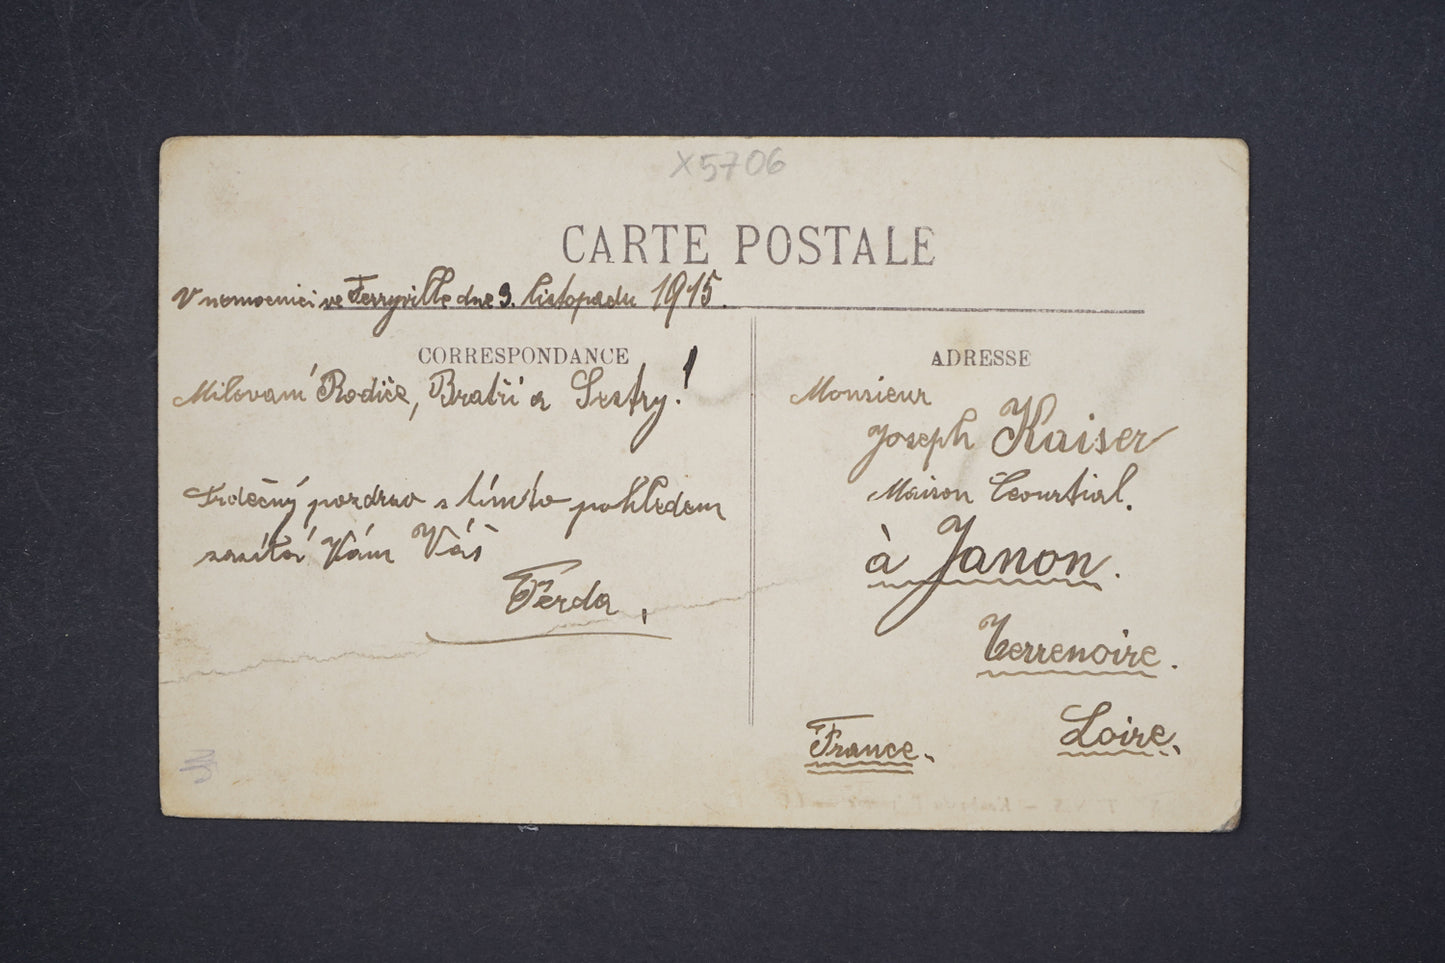 X5706
CARTE POSTALE
V nemocnici ve Ferryville dne 3. listopadu 1915.
CORRESPONDANCE
Milovaní Rodiče, Bratři a Sestry!
Srdečný pozdrav s tímto pohledem
zasílá Vám Váš
Ferda.
ADRESSE
Monsieur
Joseph Kaiser
Maison Courtial.
à Janon.
Terrenoire.
Loire.
France.